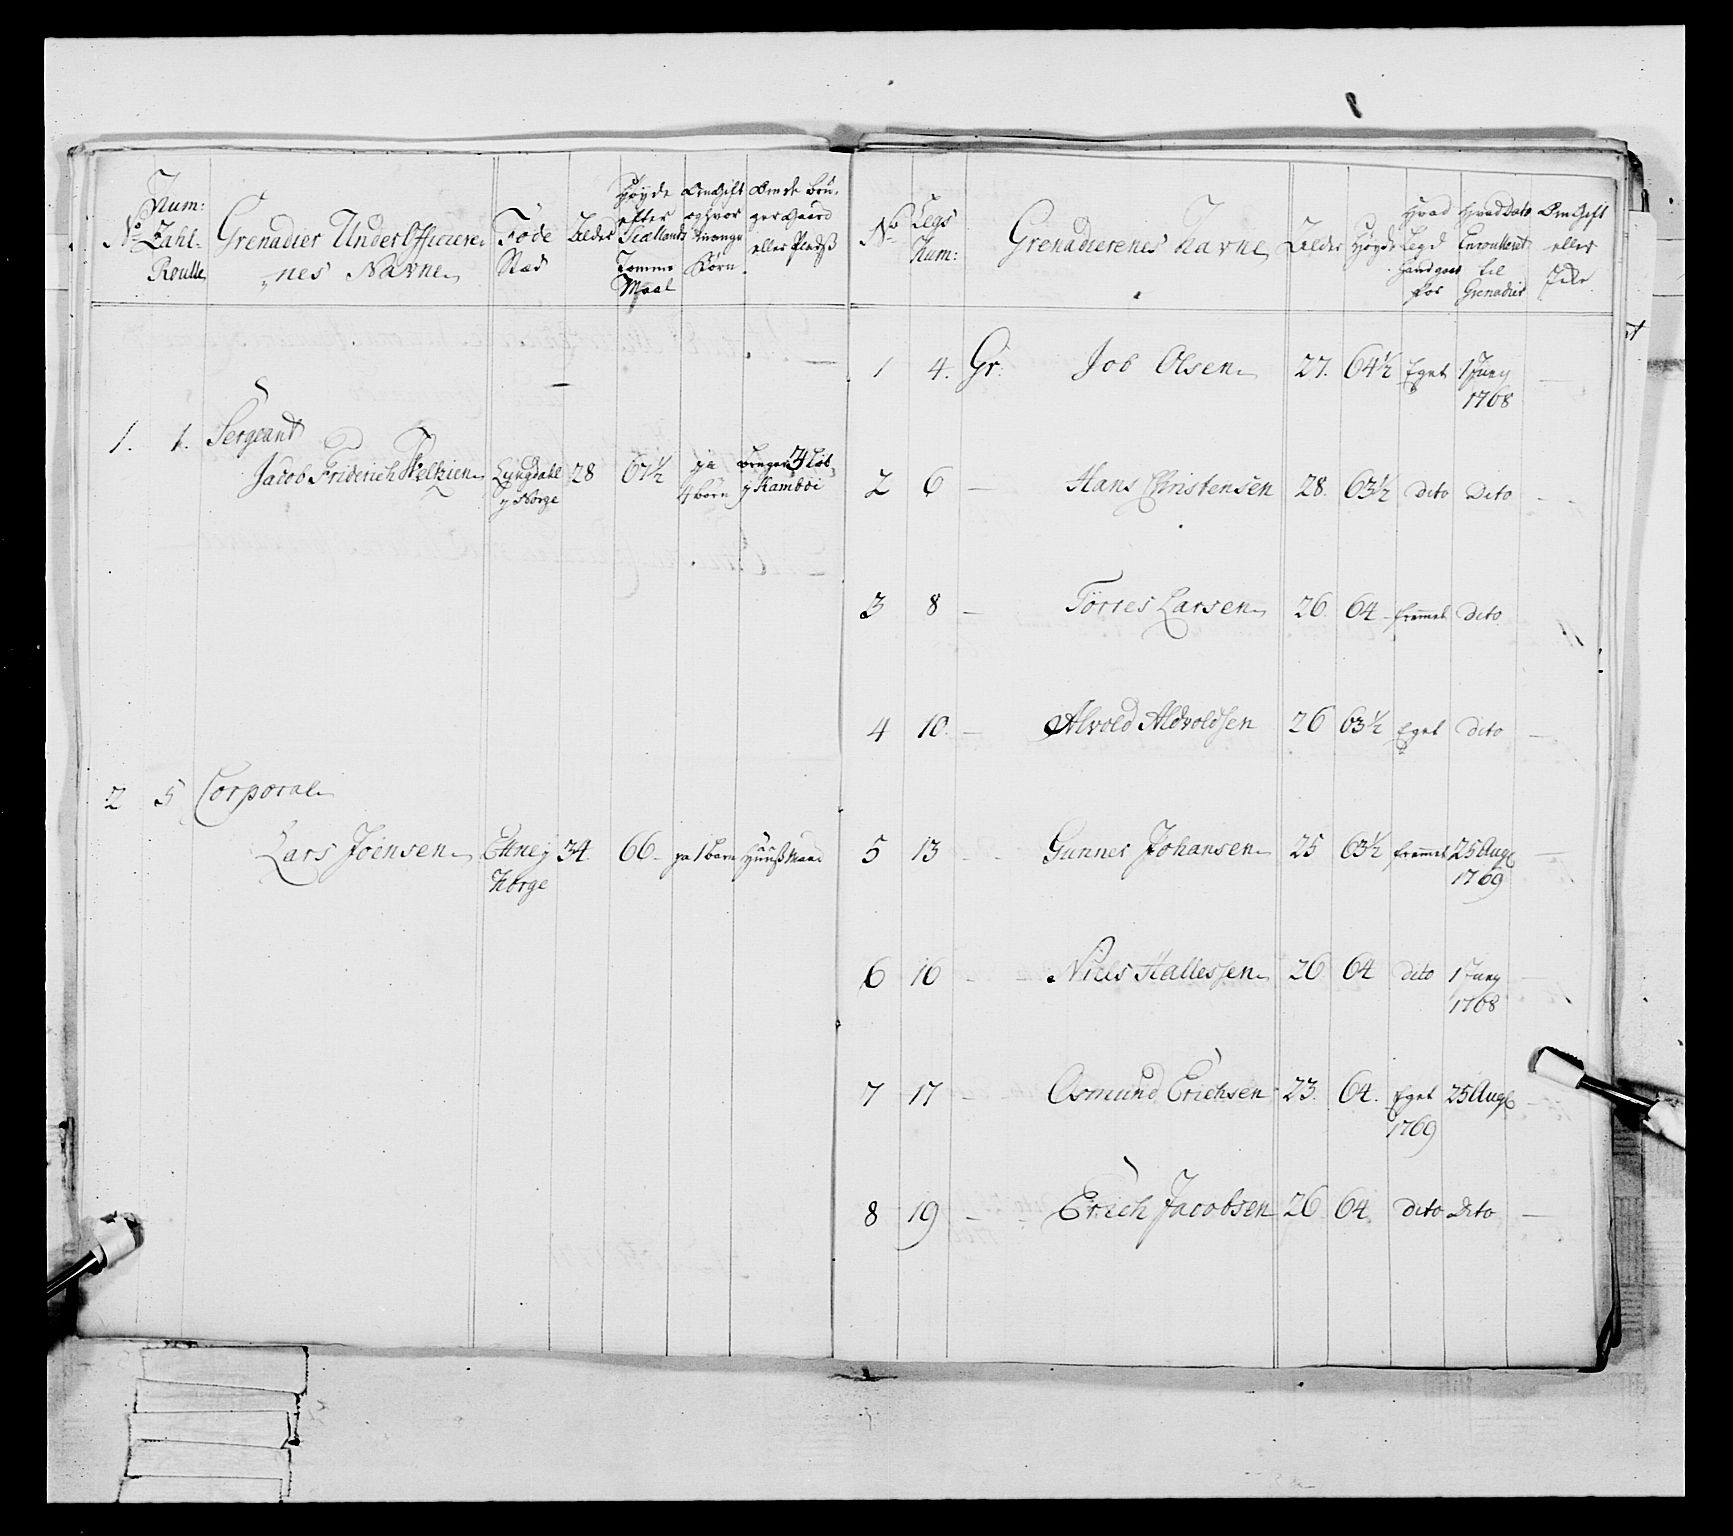 No
Num:
Zahl-
Roulle
Grenadier UnderOfficerer
nes Navne
Føde
Stæd
Alder
Høyde
efter
Siællands
Tomme
Maal
Om Gift
og hvor
mange
Børn
Om de bru-
ger Gaard
eller Pladß
1. 1. Sergeant
Jacob Friderich Weltzien Lyngdahl 28 67½ ja
y Norge 4 børn y Ramböi
2 5 Corporal
Lars Joensen Etne y 34. 66 - ja 1 barn Huusmand
Norge
No
Legs
Num:
Grenadierenes Navne
Alder
Høyde
Hvad
Legd
hand gaar
for
Hvad Dato
Enroulleret
til
Grenadier
Om Gift
eller
Ikke
1 4. Gr: Job Olsen 27. 64½ Eget 1 Juny —
1768
2 6 — Hans Christensen 28. 63½ dito Dito —
3 8 — Törres Larsen 26. 64 - fremmet dito
4 10. — Alvold Aldvoldsen 26 63½ Eget dito —
5 13 - Gunner Johansen 25 63½ fremmet 25 Aug —
1769
6 16 - Niels Hallessen 26 64 dito 1 Juny —
1768
7 17 - Osmund Erichsen 23. 64. Eget 25 Aug —
1769
8 19 — Erich Jacobsen 26 64 dito Dito —